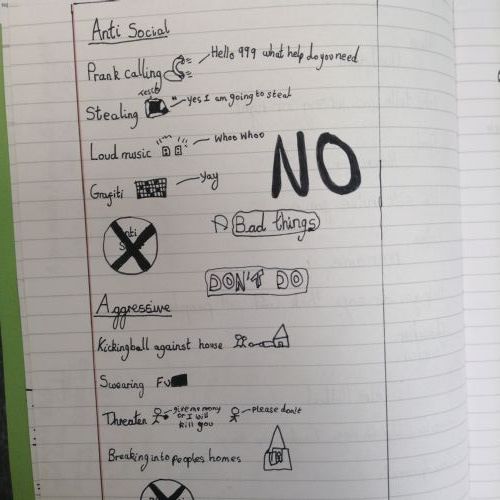 Anti Social
Hello 999 what help do you need
Prank calling
Tesco
Stealing yes I am going to steal
Loud music Whoo Whoo
NO
Grafiti Yay
Anti
Bad things
DON'T DO
Aggressive
Kicking ball against house
Swearing Fu
Threaten give me mony please don't
or I will
kill you
Breaking into peoples homes